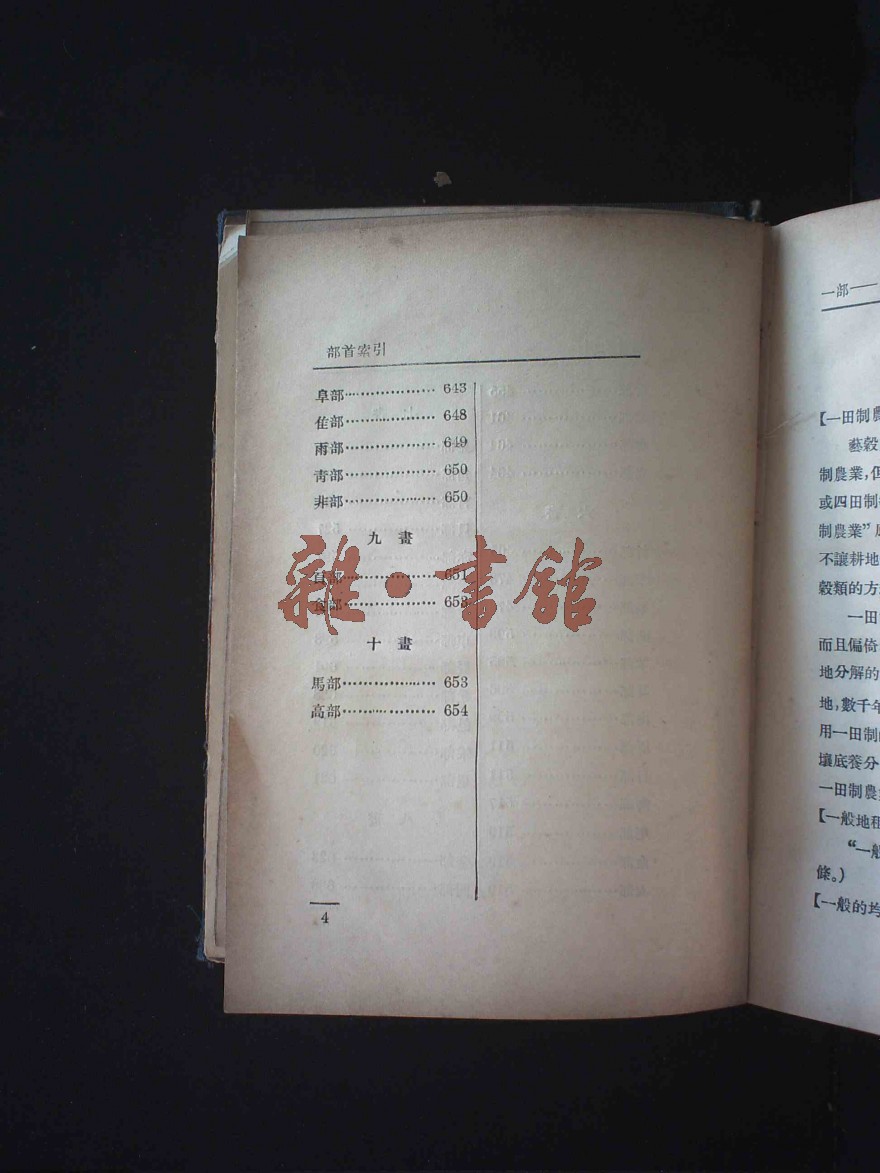 部首索引
阜部 643
隹部 648
雨部 649
靑部 650
非部 650
九畫
651
食部 653
十畫
馬部 653
高部 654
4
雜·書館
一部一
【一田制農
藝穀
制農業，但
或四田制
制農業”
不讓耕地
穀類的方
一田
而且偏倚
地分解的
地，數千年
用一田制
壤底養分
一田制農
【一般地租
“一般
條。）
【一般的均